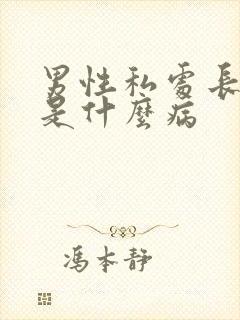 男性私處長
是什麼病
馮本靜